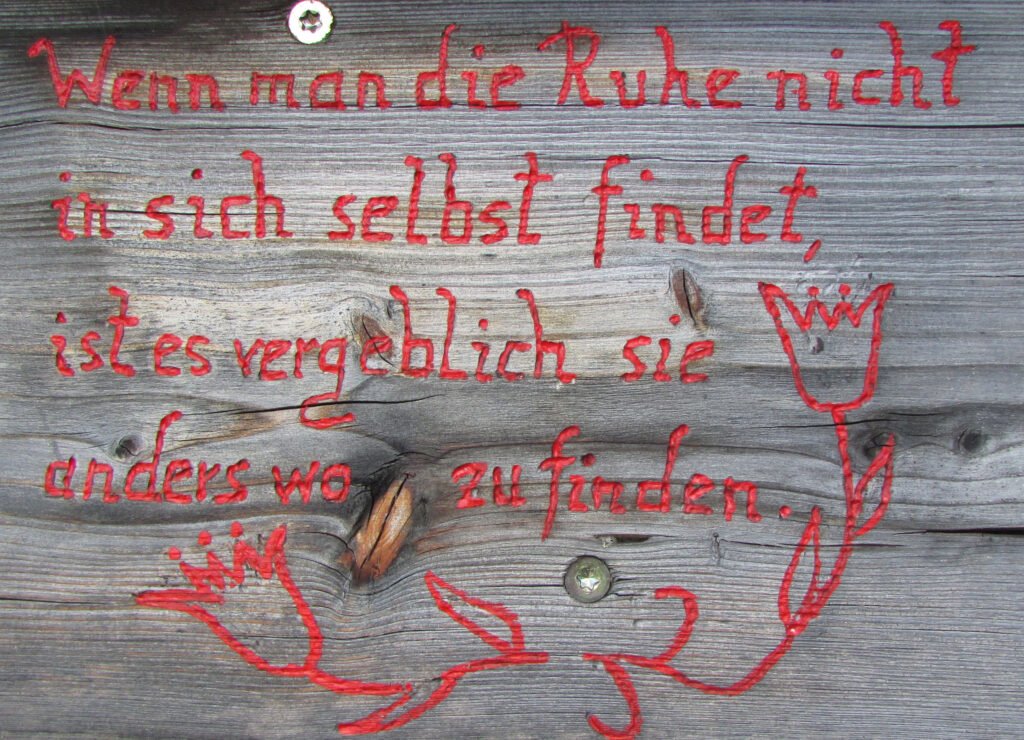 Wenn man die Ruhe nicht
in sich selbst findet,
ist es vergeblich sie
anders wo zu finden.